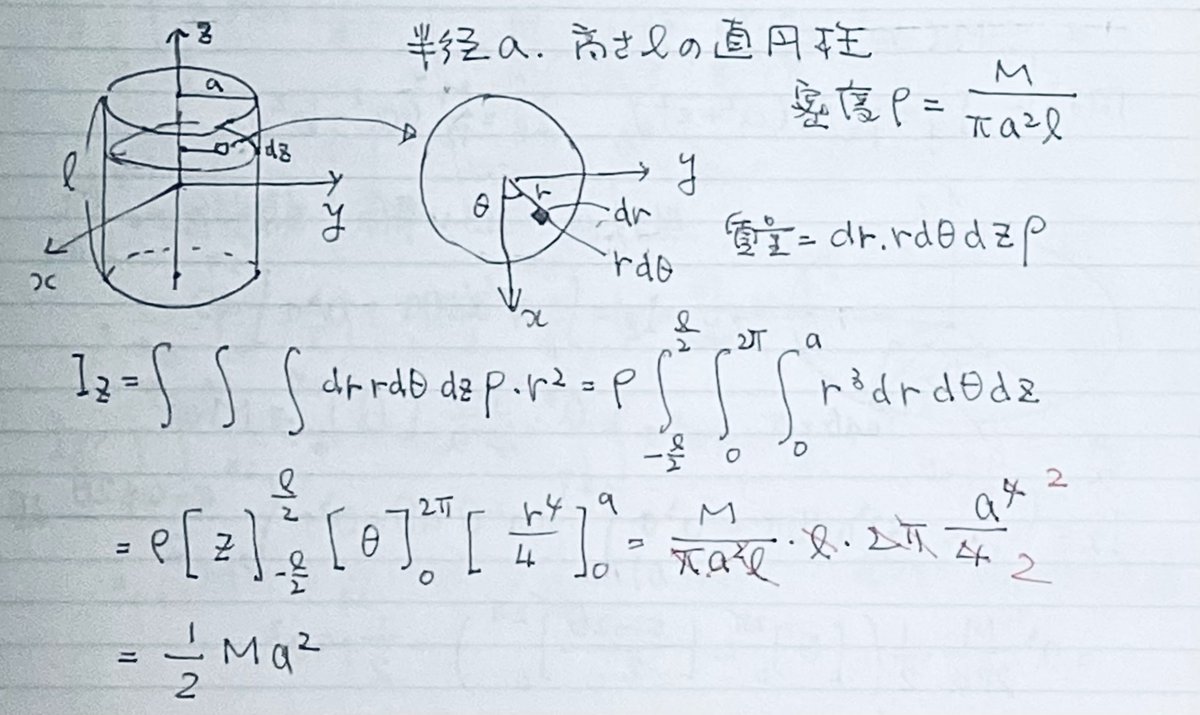 半径a. 高さlの直円柱
密度ρ = M/(πa²l)
z
a
dz
l
y
x
y
θ
r
dr
rdθ
x
質量 = dr.rdθdzρ
I_z = ∫∫∫ dr rdθ dz ρ・r² = ρ∫_{-l/2}^{l/2} ∫_0^{2π} ∫_0^a r³ dr dθ dz
= ρ[z]_{-l/2}^{l/2} [θ]_0^{2π} [r⁴/4]_0^a = M/(πa²l)・l・2π a⁴/4 2 2
= 1/2 Ma²